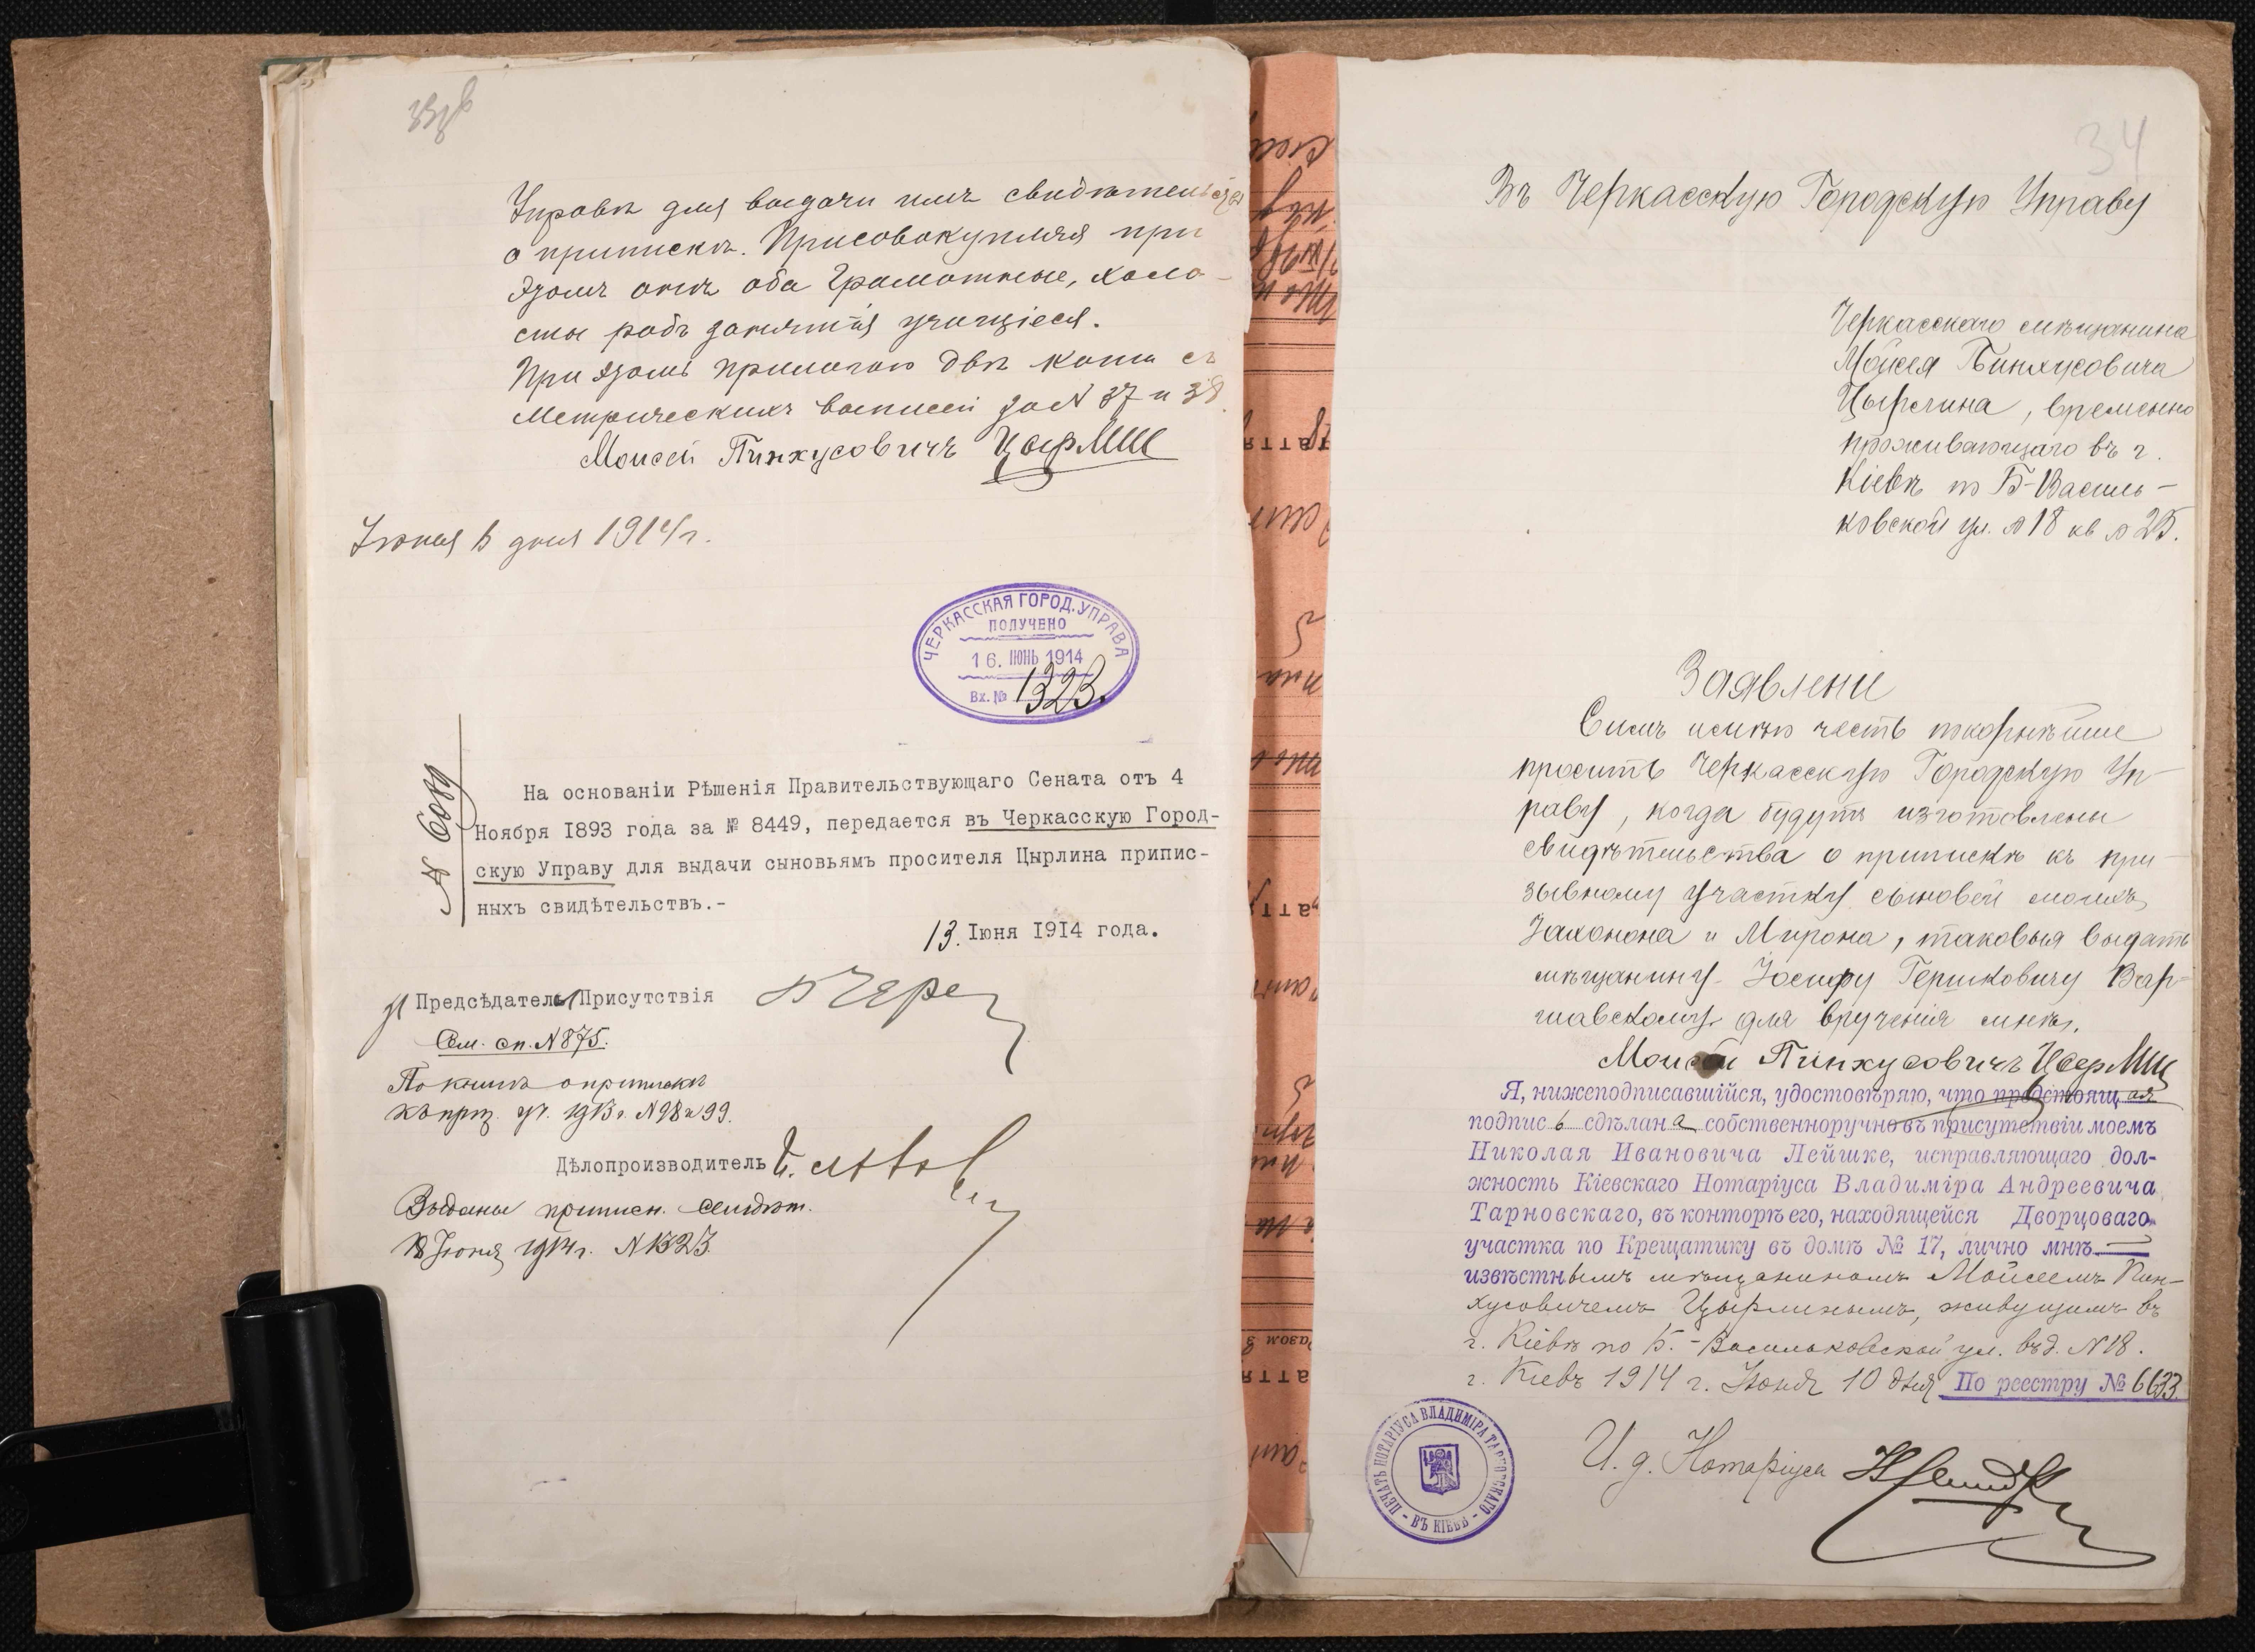 33 об
Управѣ для выдачи имъ свидѣтельства
о припискѣ. Присовокупляя при
эзомъ онѣ оба Грамотные, холо-
сты родъ занятій учащіеся.
При эзомъ прилагаю двѣ копіи съ
Метрическихъ выписей за N 37 и 38.
Моисей Пинхусовичъ Цырлин
Іюня 5 дня 1914 г.
ЧЕРКАССКАЯ ГОРОД. УПРАВА
ПОЛУЧЕНО
16. ІЮНЬ 1914
Вх. № 1323.
На основаніи Рѣшенія Правительствующаго Сената отъ 4
Ноября 1893 года за № 8449, передается въ Черкасскую Город-
скую Управу для выдачи сыновьямъ просителя Цырлина припис-
ныхъ свидѣтельствъ.-
13. Іюня 1914 года.
Предсѣдатель Присутствія
Сем. сп. N 875.
По книгѣ о припискѣ
къ приз. уч. 1913 г. N 98 и 99.
Дѣлопроизводитель
Выданы приписн. свидѣт.
18 Іюня 1914 г. N 1323.
34
Въ Черкасскую Городскую Управу
Черкасскаго мѣщанина
Мойсея Пинхусовича
Цырлина, временно
проживающаго въ г.
Кіевѣ по Б-Василь-
ковской ул. № 18 кв № 25.
Заявленіе
Симъ имѣю честь покорнѣйше
просить Черкасскую Городскую Уп-
раву, когда будутъ изготовлены
свидѣтельства о припискѣ къ при-
зывному участку сыновей моихъ
Захонона и Мирона, таковыя выдать
мѣщанину Іосифу Гершковичу Вар-
шавскому для врученія мнѣ.
Моисей Пинхусовичъ Цырлин
Я, нижеподписавшійся, удостовѣряю, что предстоящая
подпись сдѣлана собственноручно въ присутствіи моемъ
Николая Ивановича Лейшке, исправляющаго дол-
жность Кіевскаго Нотаріуса Владиміра Андреевича
Тарновскаго, въ конторѣ его, находящейся Дворцоваго
участка по Крещатику въ домѣ № 17, лично мнѣ
извѣстнымъ мѣщаниномъ Мойсеемъ Пин-
хусовичемъ Цырлинымъ, живущимъ въ
г. Кіевѣ по Б.-Васильковской ул. въ д. N 18.
г. Кіевъ 1914 г. Іюня 10 дня По реестру № 6633
ПЕЧАТЬ НОТАРІУСА ВЛАДИМІРА ТАРНОВСКАГО
- ВЪ КІЕВѢ -
И. д. Нотаріуса